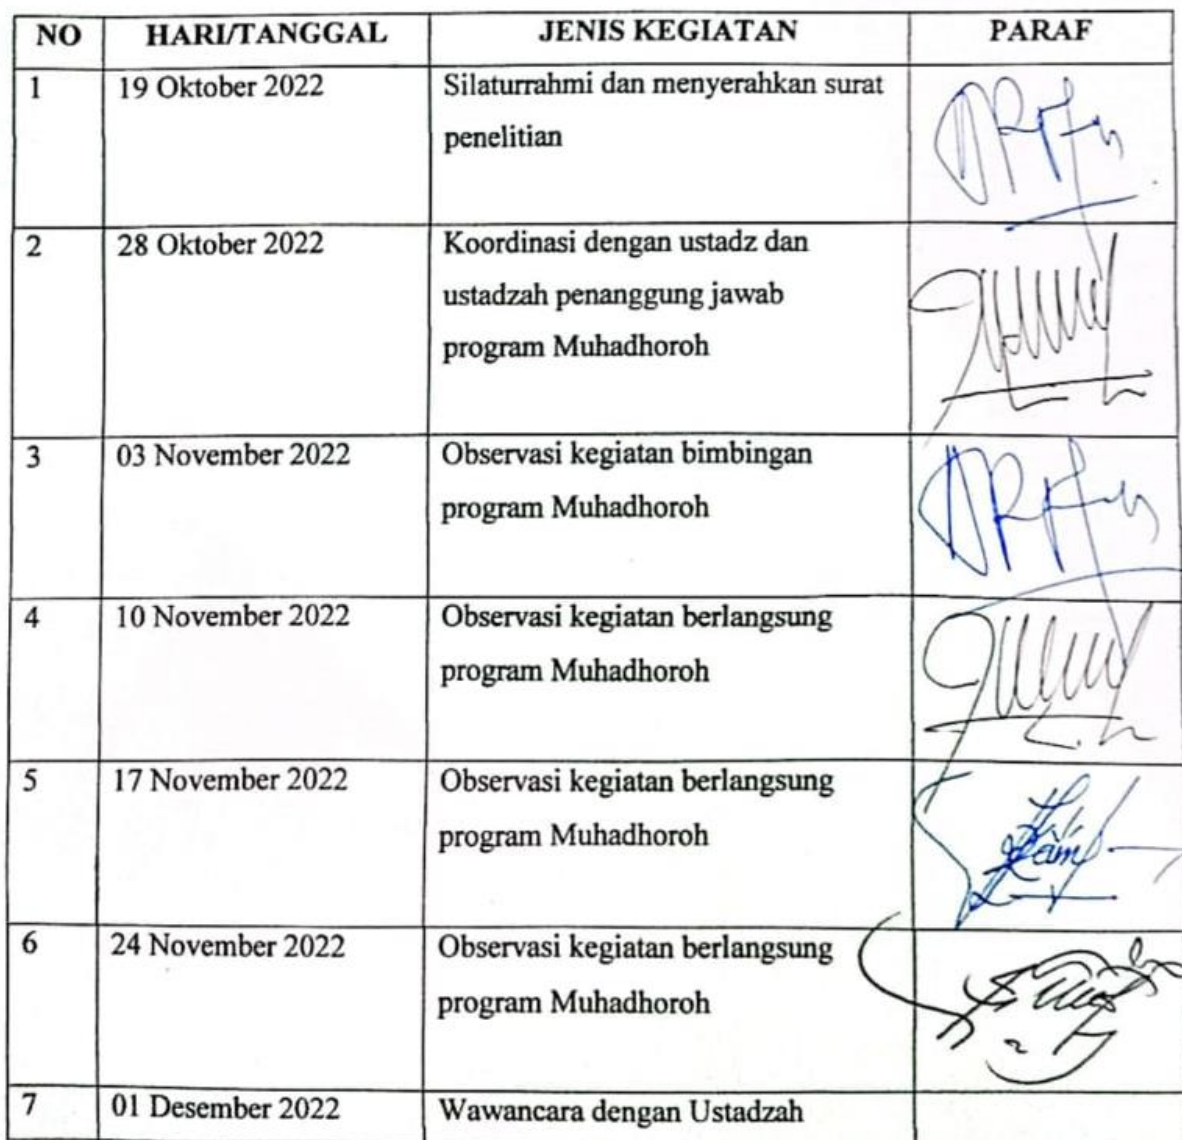 NO HARI/TANGGAL JENIS KEGIATAN PARAF
1 19 Oktober 2022 Silaturrahmi dan menyerahkan surat
penelitian
2 28 Oktober 2022 Koordinasi dengan ustadz dan
ustadzah penanggung jawab
program Muhadhoroh
3 03 November 2022 Observasi kegiatan bimbingan
program Muhadhoroh
4 10 November 2022 Observasi kegiatan berlangsung
program Muhadhoroh
5 17 November 2022 Observasi kegiatan berlangsung
program Muhadhoroh
6 24 November 2022 Observasi kegiatan berlangsung
program Muhadhoroh
7 01 Desember 2022 Wawancara dengan Ustadzah